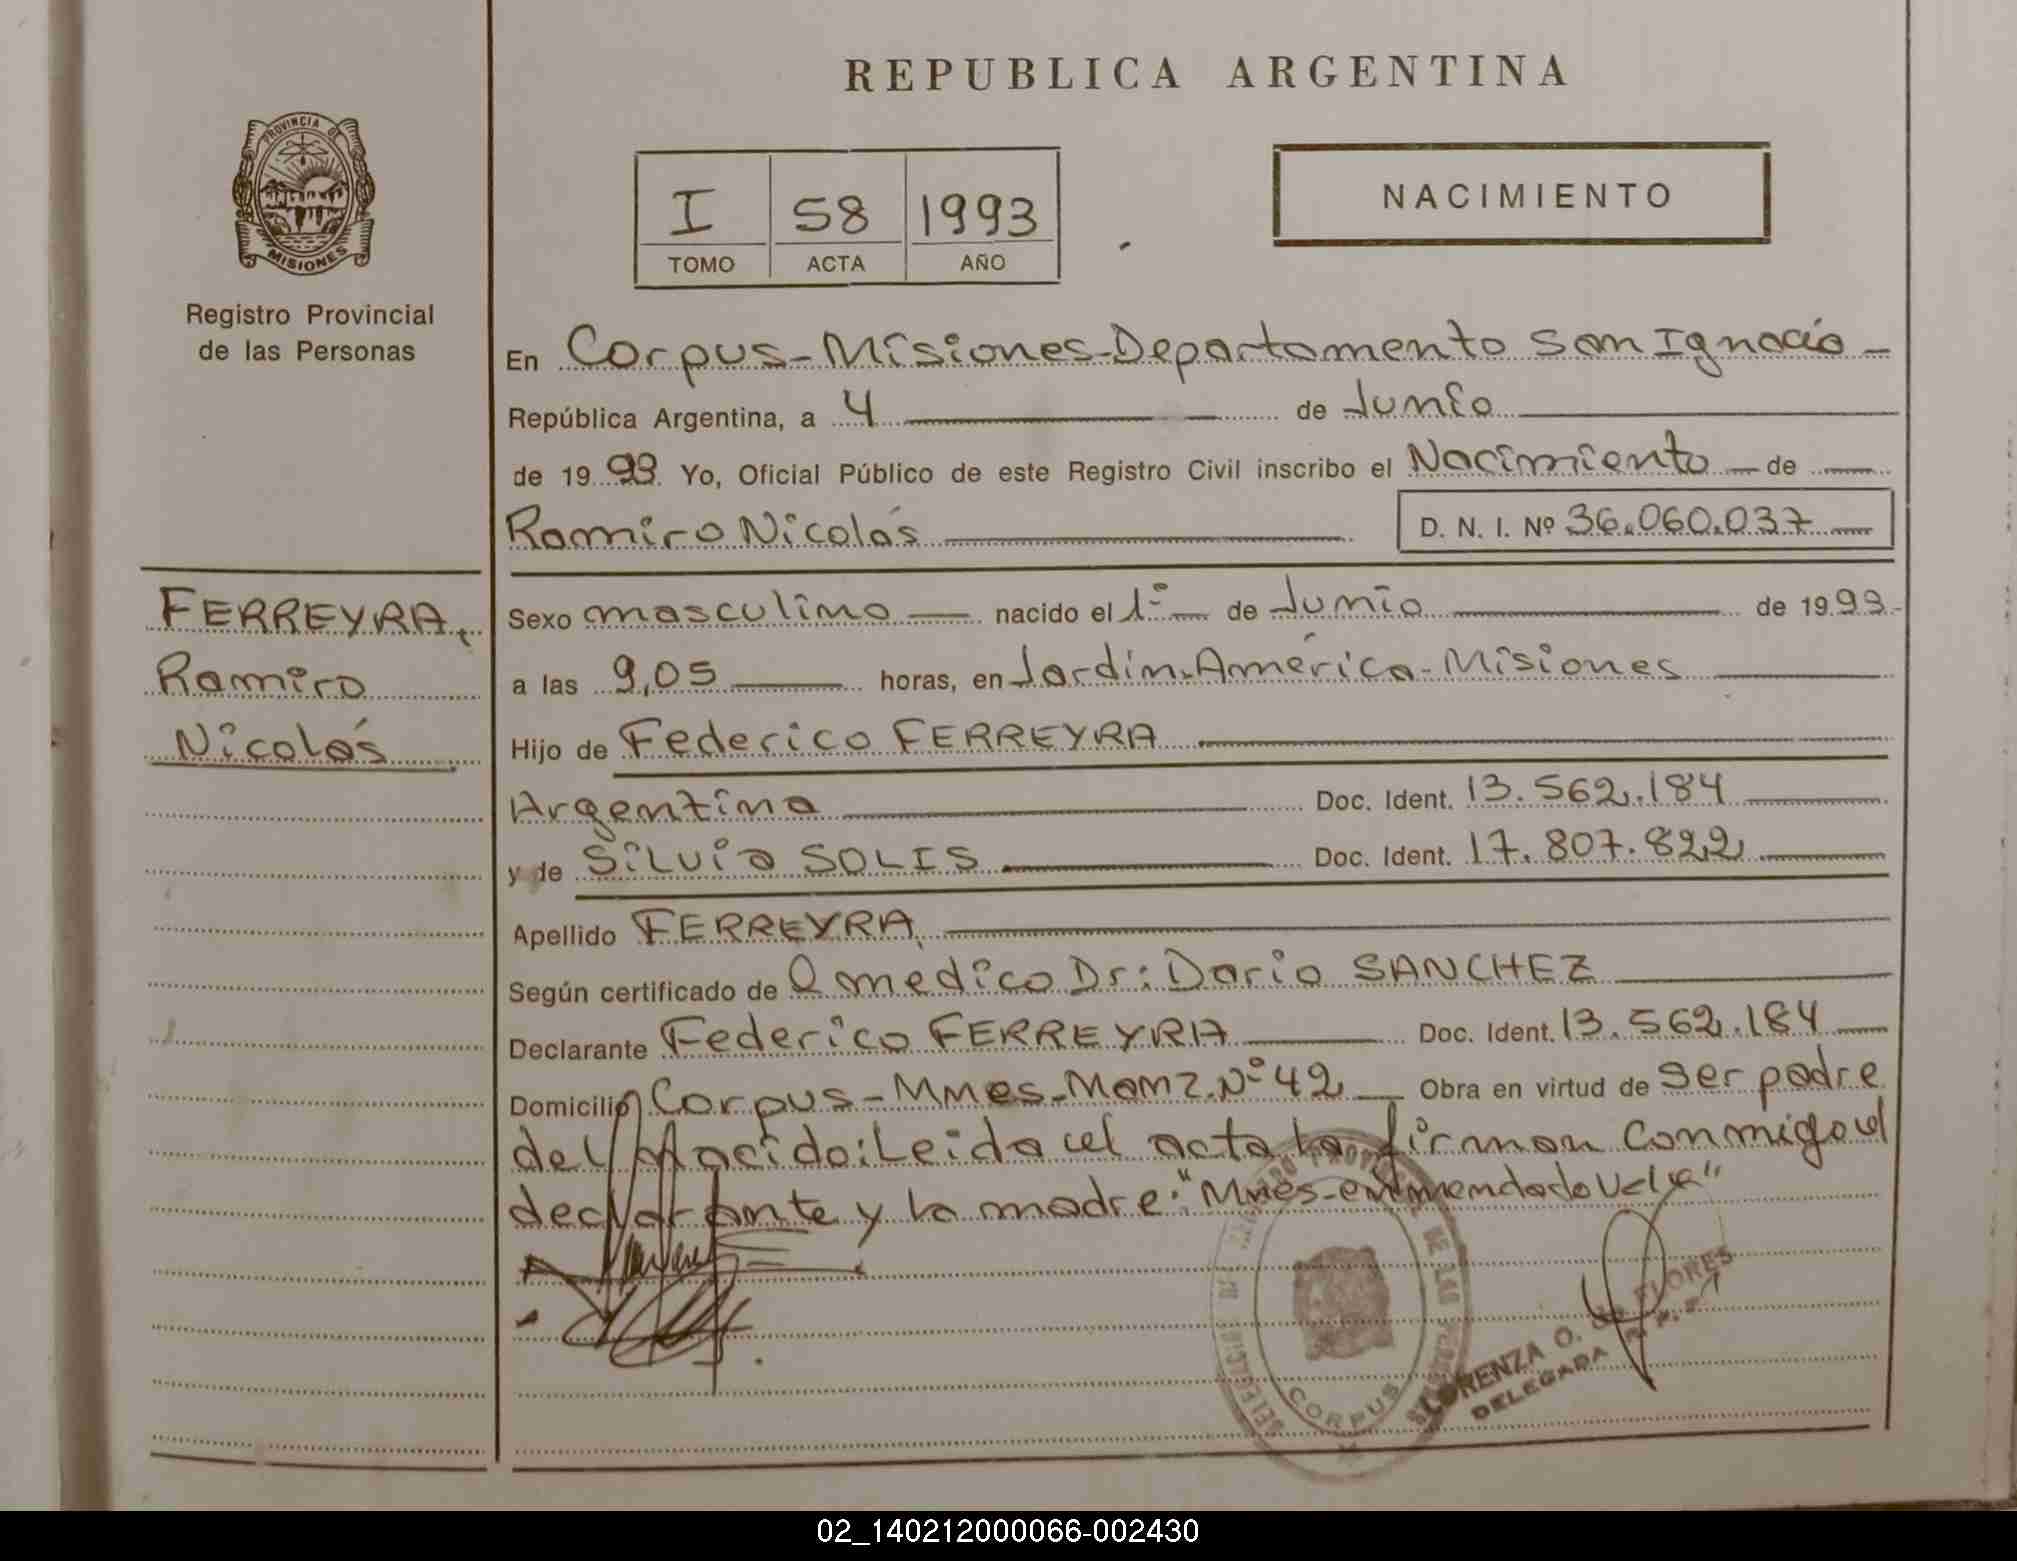 REPUBLICA ARGENTINA
PROVINCIA DE
MISIONES
Registro Provincial
de las Personas
I 58 1993
TOMO ACTA AÑO
NACIMIENTO
En Corpus-Misiones-Departamento San Ignacio-
República Argentina, a 4 de Junio
de 1993. Yo, Oficial Público de este Registro Civil inscribo el Nacimiento de
Ramiro Nicolás D. N. I. Nº 36.060.037
FERREYRA,
Ramiro
Nicolás
Sexo masculino nacido el 1º de Junio de 1993.
a las 9,05 horas, en Jardín América-Misiones
Hijo de Federico FERREYRA
Argentina Doc. Ident. 13.562.184
y de Silvia SOLIS Doc. Ident. 17.807.822
Apellido FERREYRA
Según certificado de l medico Dr: Dario SANCHEZ
Declarante Federico FERREYRA Doc. Ident. 13.562.184
Domicilio Corpus-Mnes-Manz.Nº42 Obra en virtud de ser padre
del Nacido: Leida el acta la firman conmigo el
declarante y la madre: "Mnes-enmendado Vale"
CORPUS
LORENZA O. de FLORES
DELEGADA R. P. P.
02_140212000066-002430